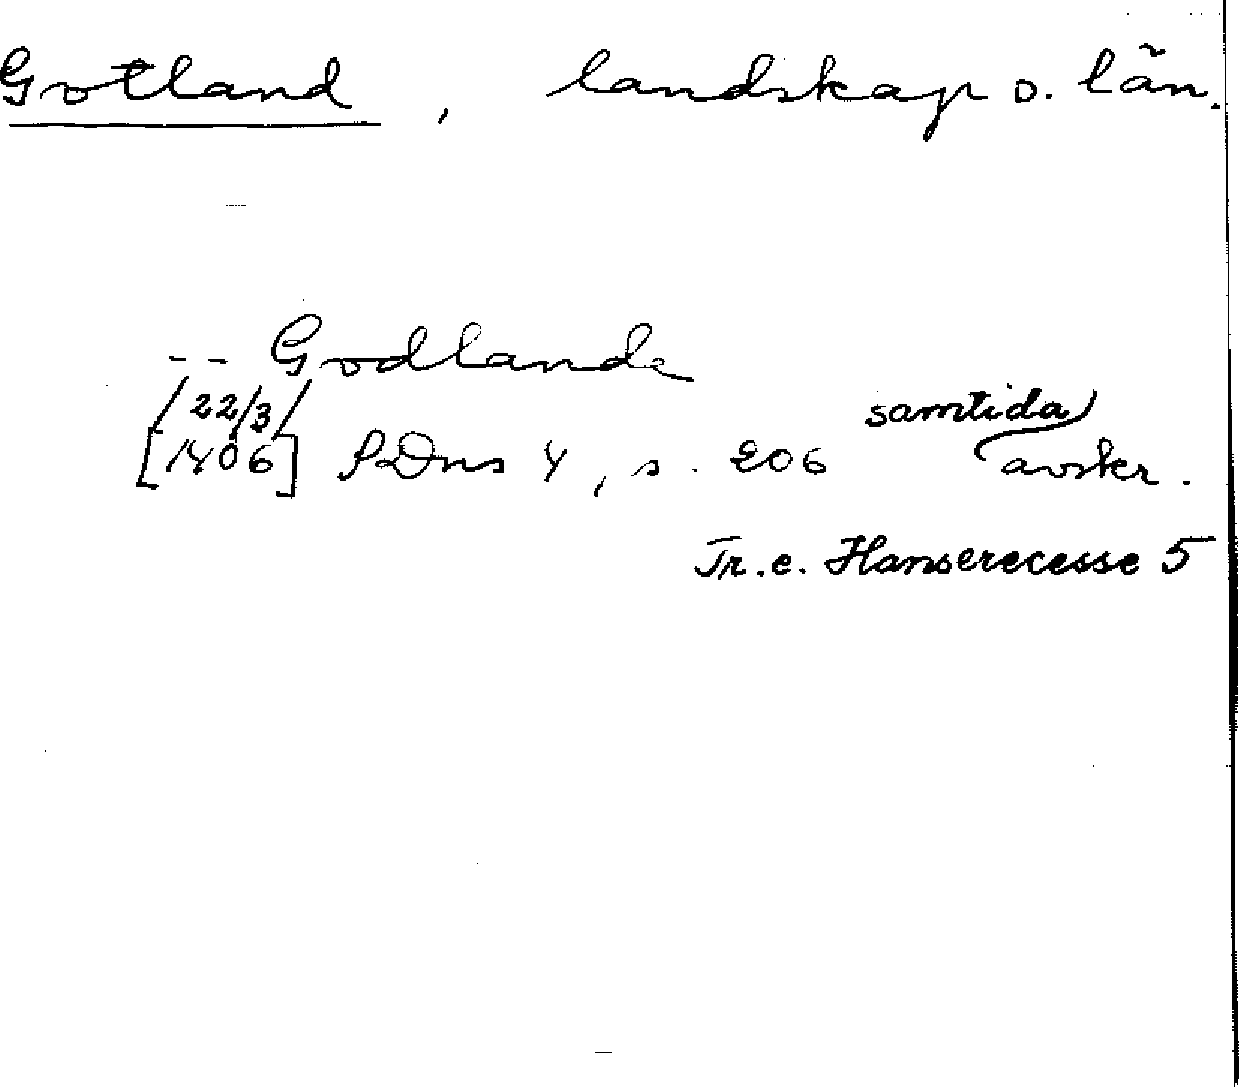 Gotland, landskap o. län.
-- Godlande
/22/3/ samtida
[1406] SDns 4, s. 206 avskr.
Tr. e. Hanserecesse 5